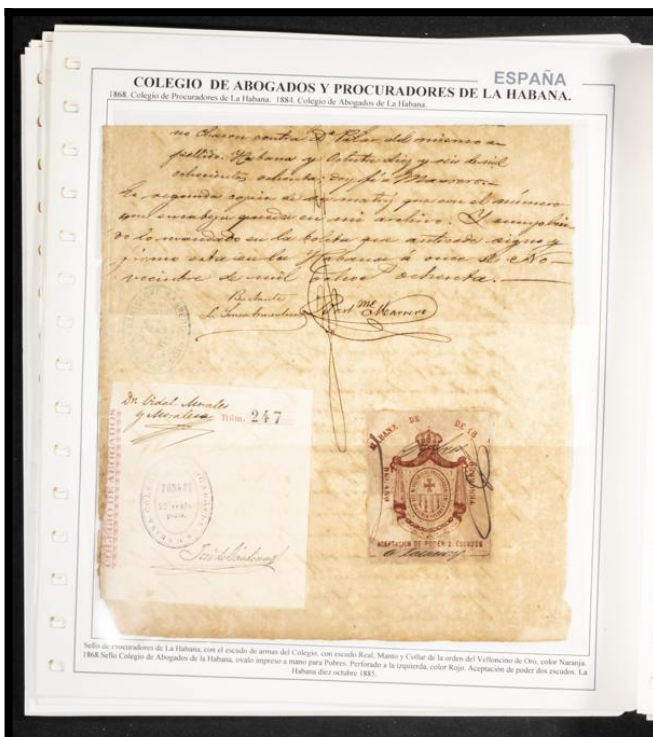 ESPAÑA
COLEGIO DE ABOGADOS Y PROCURADORES DE LA HABANA.
1868. Colegio de Procuradores de La Habana. 1884. Colegio de Abogados de La Habana.
contra Dª Pilar del mismo a
pellido. Habana y Octubre diez y seis de mil
ochocientos ochenta: doy fé Marrero.
segunda copia de su matriz que con el número
que encabeza queda en mi archivo. Y cumplien
do lo mandado en la que antecede signo y
firmo esta en la Habana á once de No
viembre de mil ochenta.
Bartᵐᵉ Marrero
Dr. Vidal Morales
y Morales
Núm. 247
COLEGIO DE ABOGADOS
POBRES
HABANA DE DE 18
ACEPTACION DE PODER 2 ESCUDOS
Sello de procuradores de La Habana, con el escudo de armas del Colegio, con escudo Real, Manto y Collar de la orden del Velloncino de Oro, color Naranja.
1868.Sello Colegio de Abogados de la Habana, ovalo impreso a mano para Pobres. Perforado a la izquierda, color Rojo. Aceptación de poder dos escudos. La
Habana diez octubre 1885.